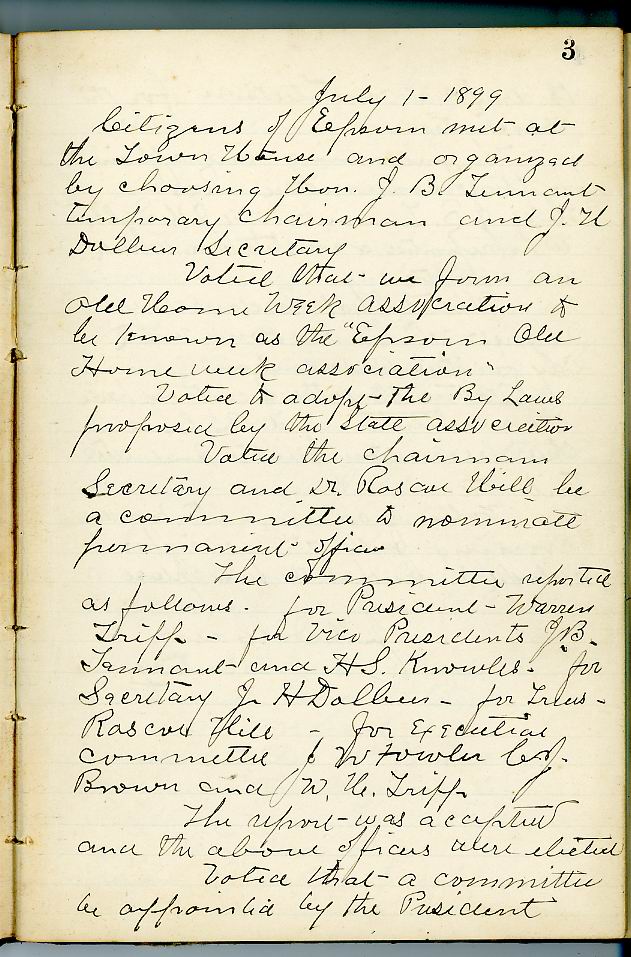 3
July 1 - 1899
Citizens of Epsom met at
the Town House and organized
by choosing Hon. J. B. Tennant
temporary chairman and J. H
Dolbeer Secretary
Voted that we form an
Old Home Week association to
be known as the "Epsom Old
Home week association"
Voted to adopt the By Laws
proposed by the State association
Voted the chairman
Secretary and Dr. Roscoe Hill be
a committee to nominate
permanent officers
The committee reported
as follows. for President - Warren
Tripp - for Vice Presidents J. B.
Tennant and H. S. Knowles. for
Secretary J. H Dolbeer - for Treas -
Roscoe Hill - for Executive
committee J W Fowler C. J.
Brown and W. H. Tripp
The report was accepted
and the above officers were elected
Voted that a committee
be appointed by the President